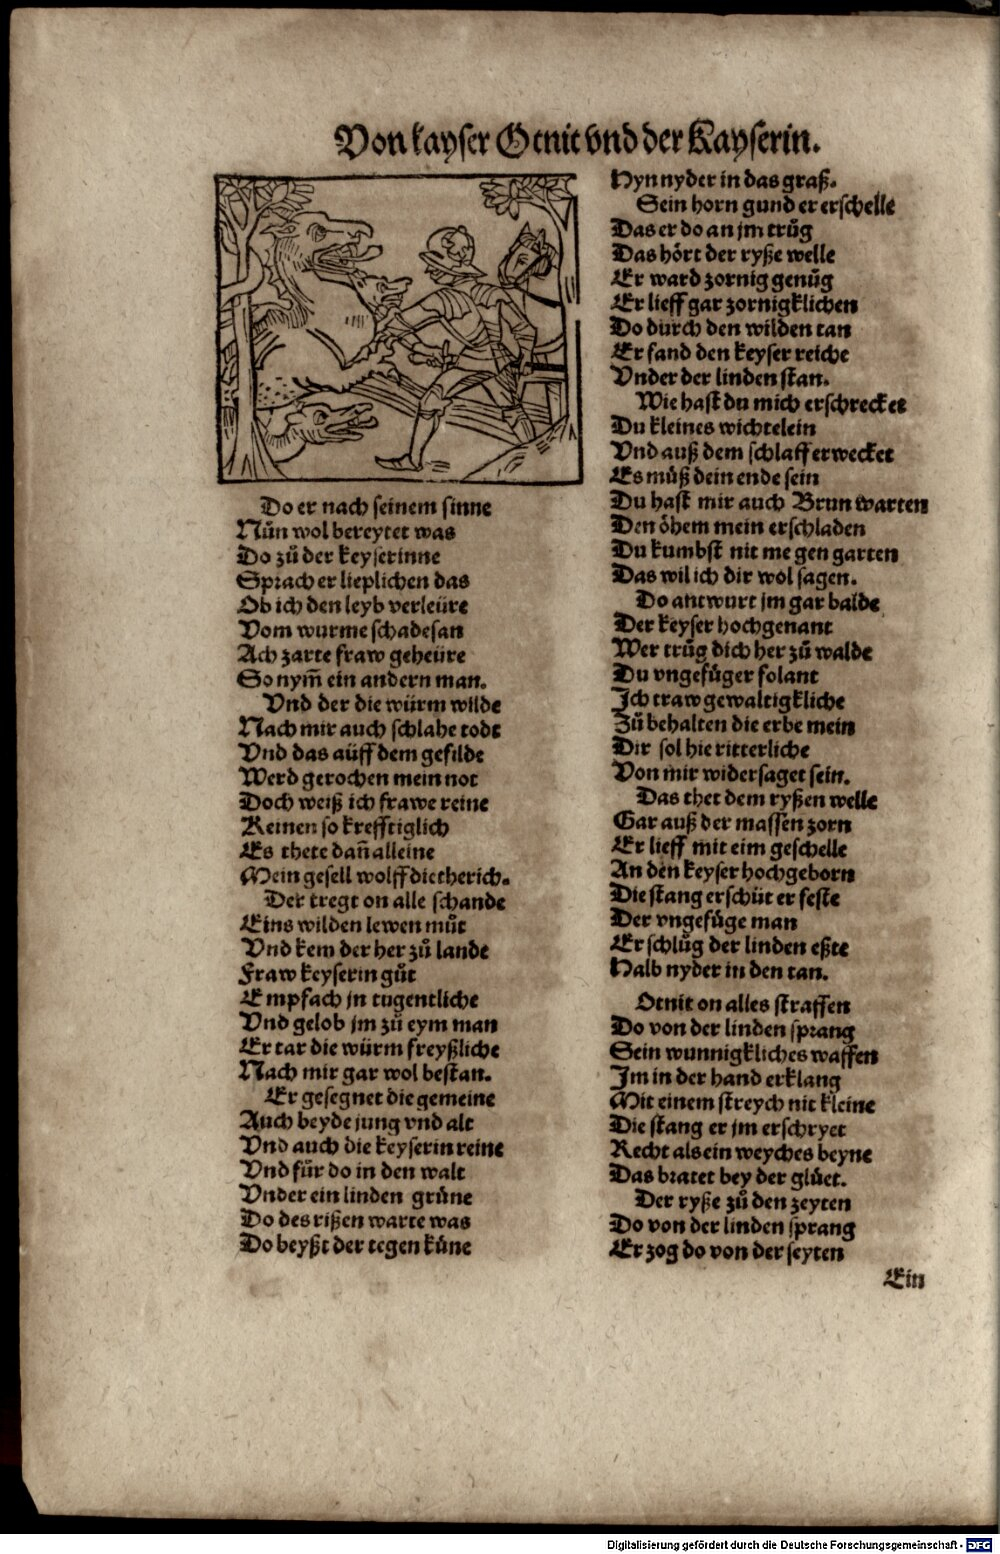 Von kayser Otnit vnd der Kayserin.
Do er nach seinem sinne
Nůn wol bereytet was
Do zů der keyserinne
Sprach er lieplichen das
Ob ich den leyb verleüre
Vom wurme schadesan
Ach zarte fraw geheüre
So nym̄ ein andern man.
Vnd der die würm wilde
Nach mir auch schlahe todt
Vnd das auff dem gefilde
Werd gerochen mein not
Doch weiß ich frawe reine
Keinen so krefftiglich
Es thete dan̄ alleine
Mein gesell wolff dietherich.
Der tregt on alle schande
Eins wilden lewen můt
Vnd kem der her zů lande
Fraw keyserin gůt
Empfach jn tugentliche
Vnd gelob jm zů eym man
Er tar die würm freyßliche
Nach mir gar wol bestan.
Er gesegnet die gemeine
Auch beyde jung vnd alt
Vnd auch die keyserin reine
Vnd fůr do in den walt
Vnder ein linden grüne
Do des rißen warte was
Do beyßt der tegen küne
Hyn nyder in das graß.
Sein horn gund er erschelle
Das er do an jm trůg
Das hört der ryße welle
Er ward zornig genůg
Er lieff gar zornigklichen
Do durch den wilden tan
Er fand den keyser reiche
Vnder der linden stan.
Wie hast du mich erschrecket
Du kleines wichtelein
Vnd auß dem schlaff erwecket
Es můß dein ende sein
Du hast mir auch Brun warten
Den öhem mein erschladen
Du kumbst nit me gen garten
Das wil ich dir wol sagen.
Do antwurt jm gar balde
Der keyser hochgenant
Wer trůg dich her zů walde
Du vngefůger folant
Ich traw gewaltigkliche
Zů behalten die erbe mein
Dir sol hie ritterliche
Von mir widersaget sein.
Das thet dem ryßen welle
Gar auß der massen zorn
Er lieff mit eim geschelle
An den keyser hochgeborn
Die stang erschüt er feste
Der vngefüge man
Er schlůg der linden eßte
Halb nyder in den tan.
Otnit on alles straffen
Do von der linden sprang
Sein wunnigkliches waffen
Im in der hand erklang
Mit einem streych nit kleine
Die stang er jm erschryet
Recht als ein weyches beyne
Das bratet bey der glüet.
Der ryße zů den zeyten
Do von der linden sprang
Er zog do von der seyten
Ein
Digitalisierung gefördert durch die Deutsche Forschungsgemeinschaft - DFG